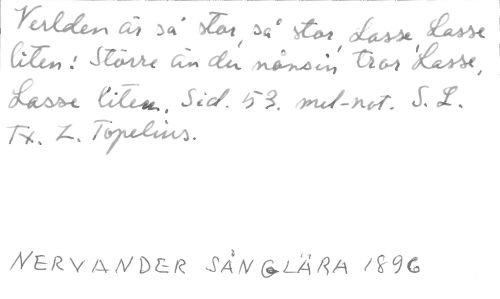 Verlden är så stor, så stor, Lasse, Lasse
liten! Större än du nånsin tror, Lasse,
Lasse liten. Sid. 53. mel-not. S. L.
Tx. Z. Topelius.
NERVANDER SÅNGLÄRA 1896